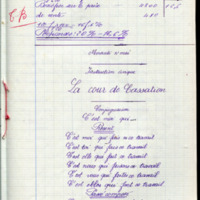 Bénéfice sur le prix
de vente
T.B
Réponses : 20% - 16,6%
Mercredi 10 mai
Instruction civique
La cour de Cassation
Conjugaison
C'est moi qui...
Présent
C'est moi qui fais ce travail
C'est toi qui fais ce travail
C'est elle qui fait ce travail
C'est nous qui faisons ce travail
C'est vous qui faites ce travail
C'est elles qui font ce travail